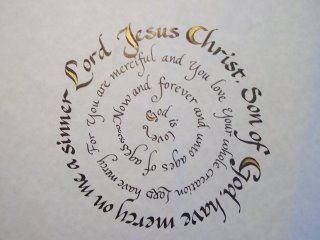 Lord Jesus Christ, Son of God, have mercy on me a sinner
For You are merciful and You love Your whole creation LORD have mercy
Now and forever and unto ages of ages
God
is
Love